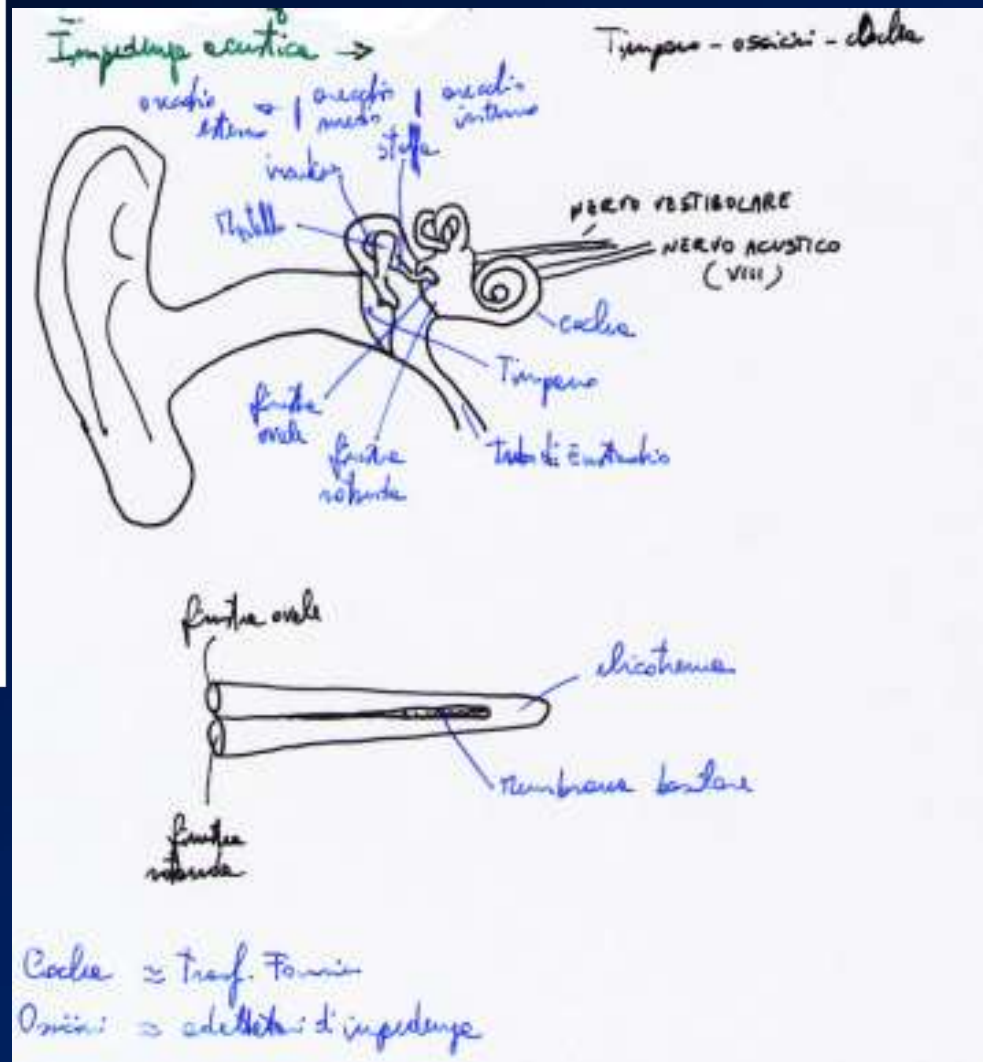 Impedenza acustica →
Timpano - ossicini - coclea
orecchio esterno
orecchio medio
orecchio interno
staffa
incudine
Martello
NERVO VESTIBOLARE
NERVO ACUSTICO
(VIII)
coclea
Timpano
finestra
ovale
finestra
rotonda
tuba di Eustachio
finestra ovale
elicotrema
membrana basilare
finestra
rotonda
Coclea ≈ Trasf. Fourier
Ossicini ≈ adattatori di impedenza